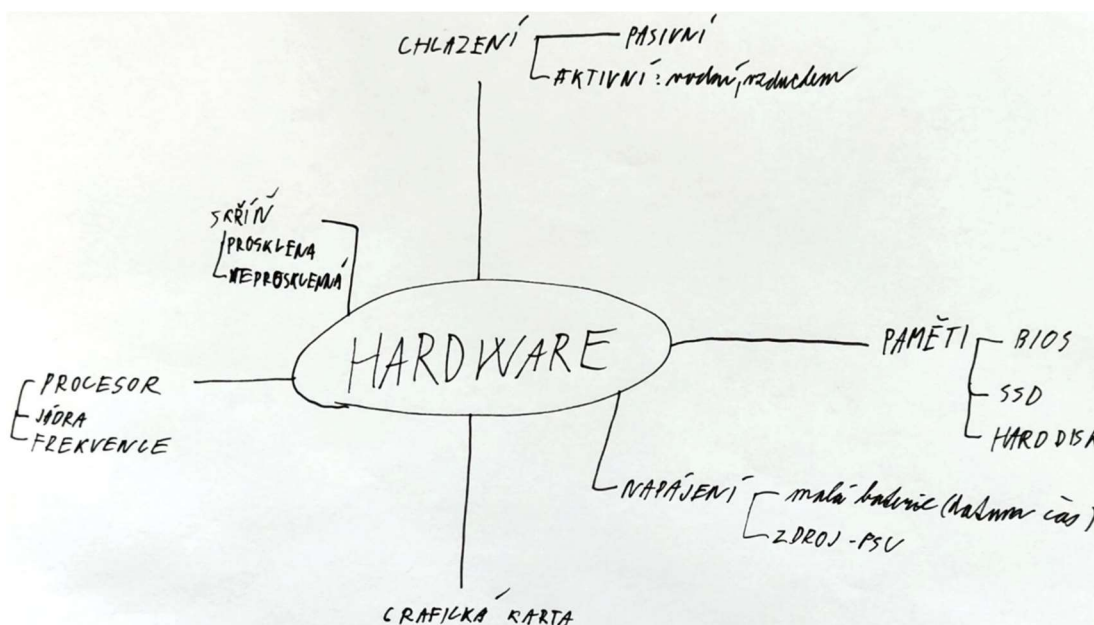 CHLAZENÍ
PASIVNÍ
AKTIVNÍ: vodní, vzduchem
SKŘÍŇ
PROSKLENA
NEPROSKLENNÁ
HARDWARE
PAMĚTI
BIOS
SSD
HARD DISK
PROCESOR
JÁDRA
FREKVENCE
NAPÁJENÍ
malá baterie (datum čas)
ZDROJ - PSU
GRAFICKÁ KARTA